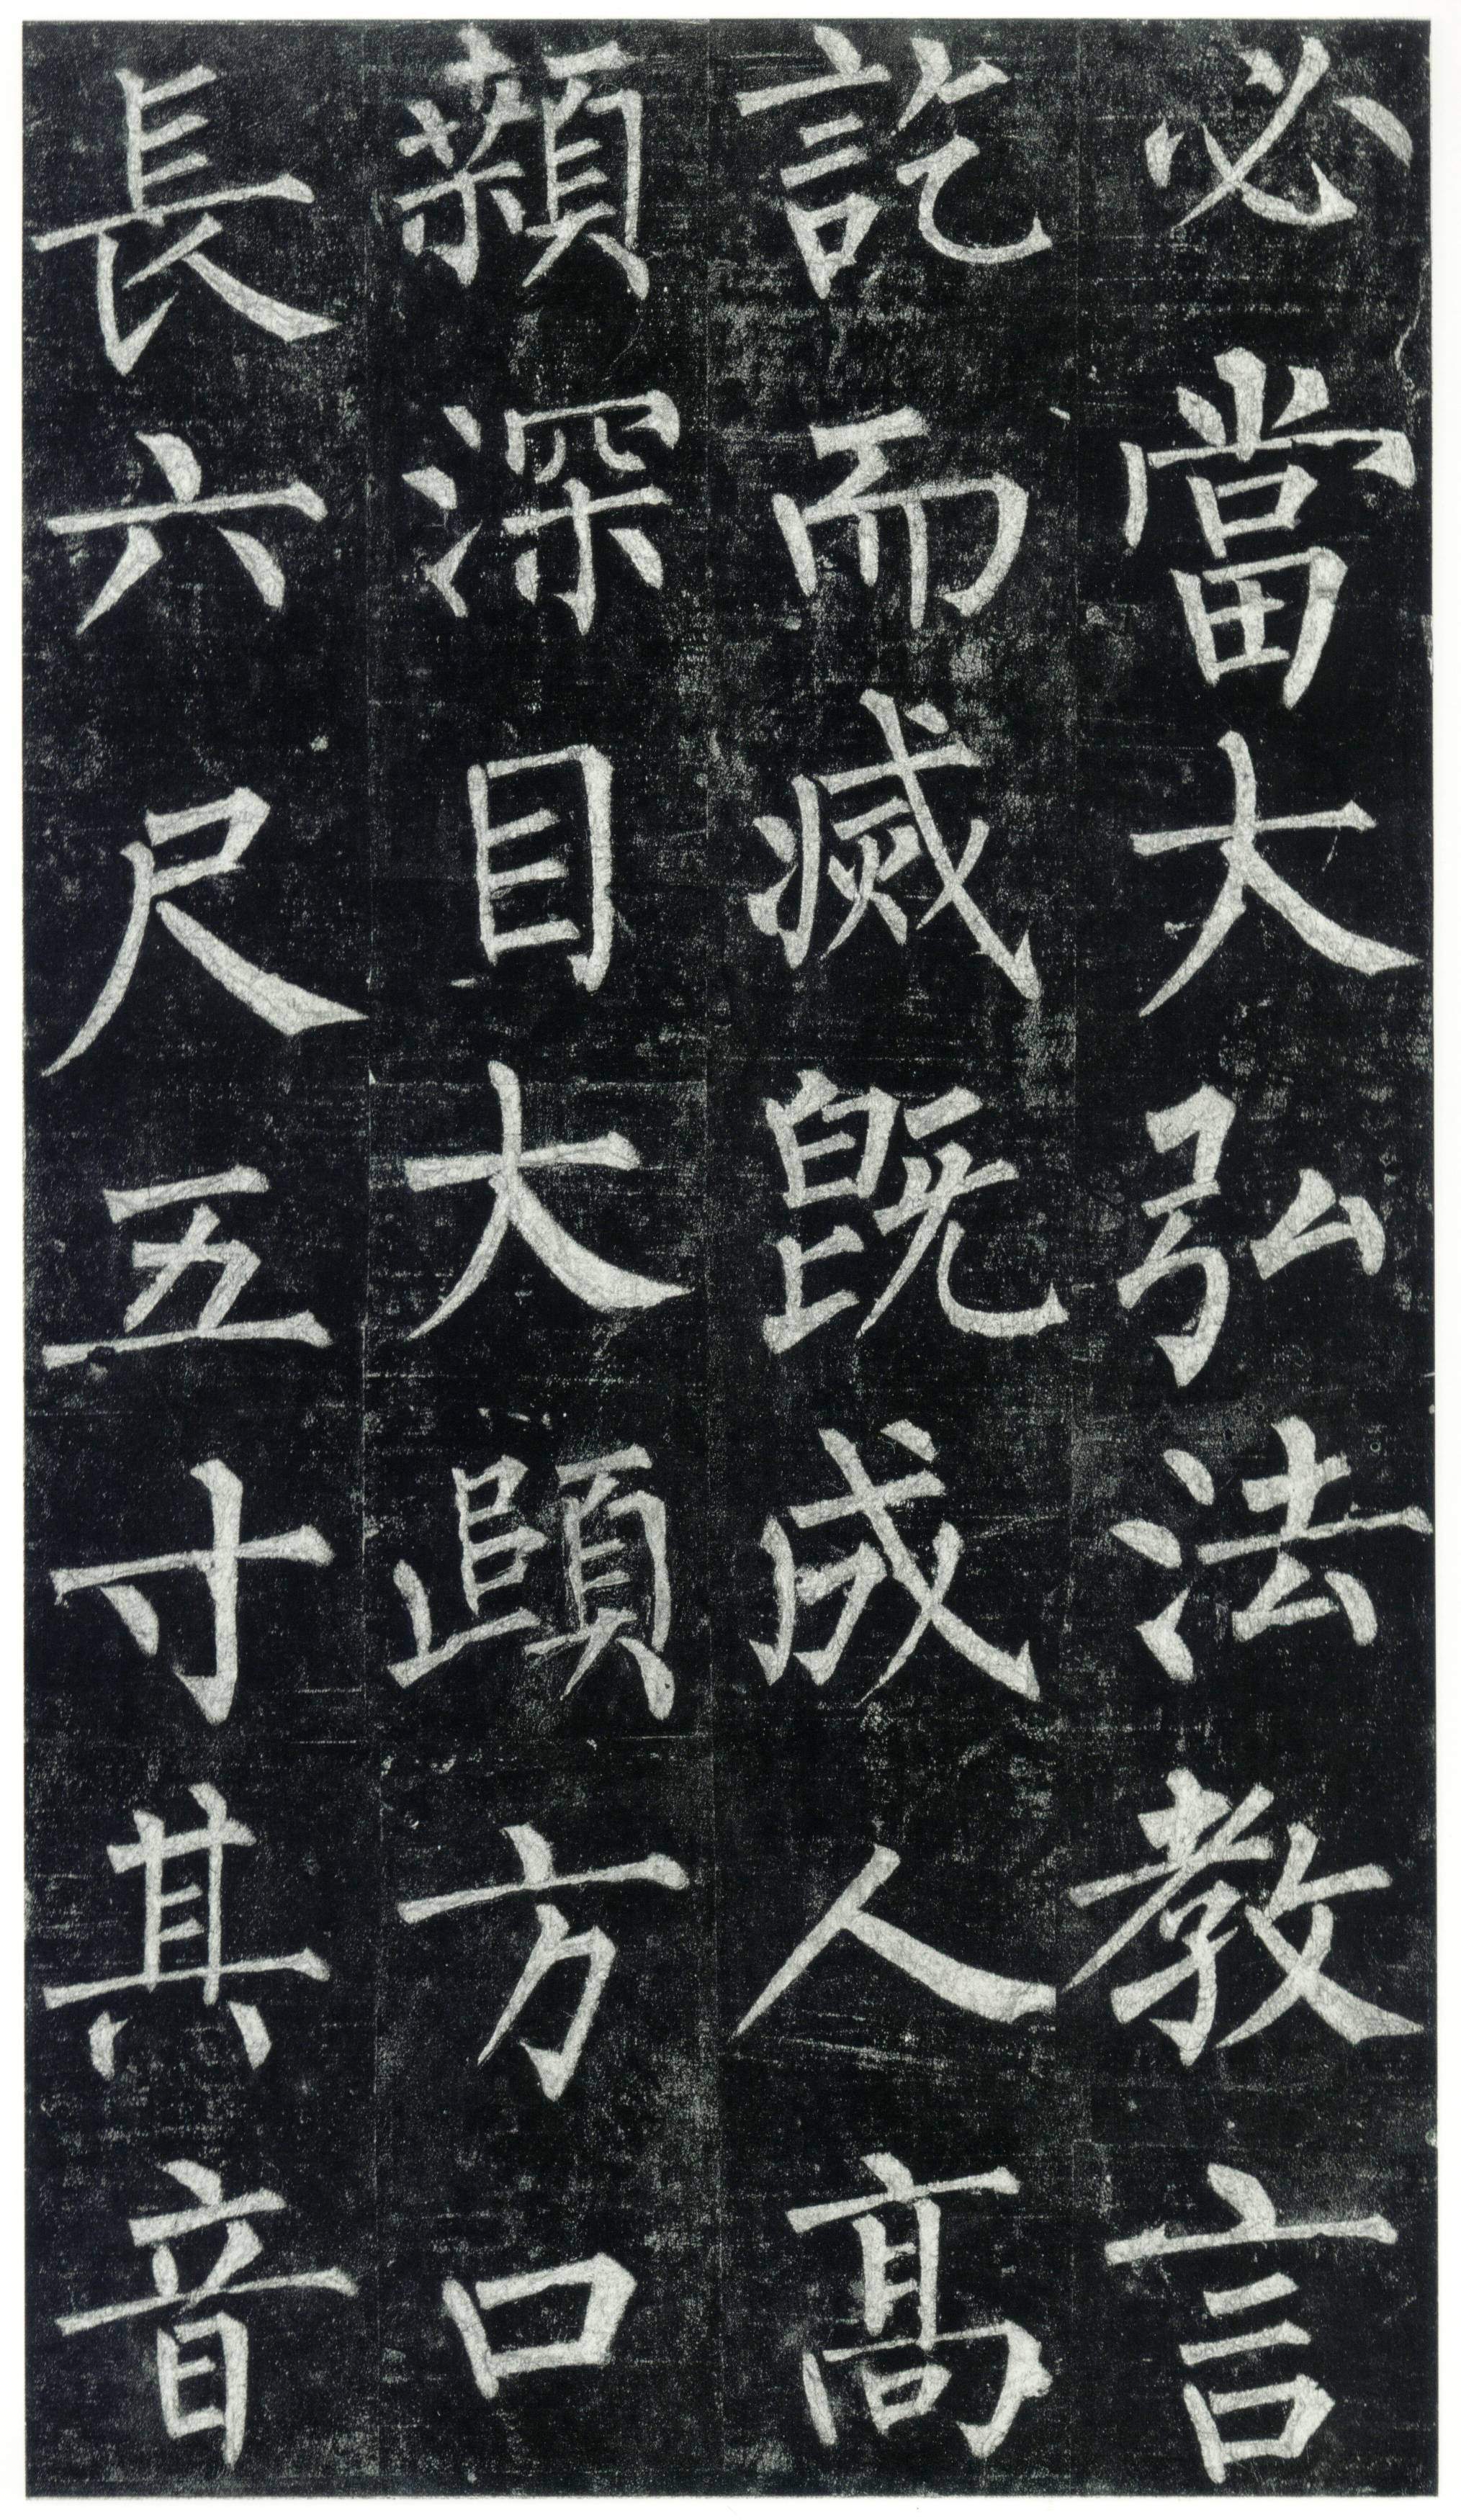 必當大弘法教言
訖而滅既成人高
顙深目大頤方口
長六尺五寸其音